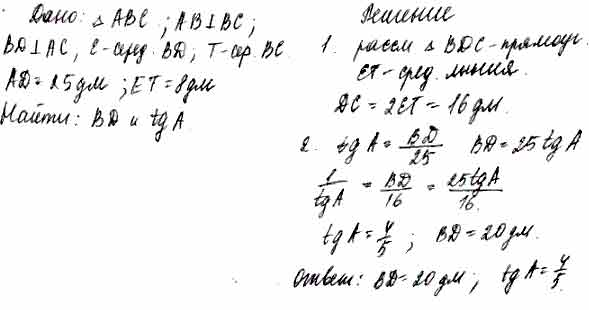 Дано: △ ABC ; AB⊥BC ;
BD⊥AC, E-серед. BD ; T-сер. BC.
AD = 25 дм ; ET = 8 дм
Найти: BD и tg A.
Решение
1. рассм △ BDC - прямоуг.
ET - сред. линия.
DC = 2ET = 16 дм.
2. tg A = BD/25 BD = 25 tg A
1/tg A = BD/16 = 25 tg A/16.
tg A = 4/5 ; BD = 20 дм.
Ответ: BD = 20 дм ; tg A = 4/5.